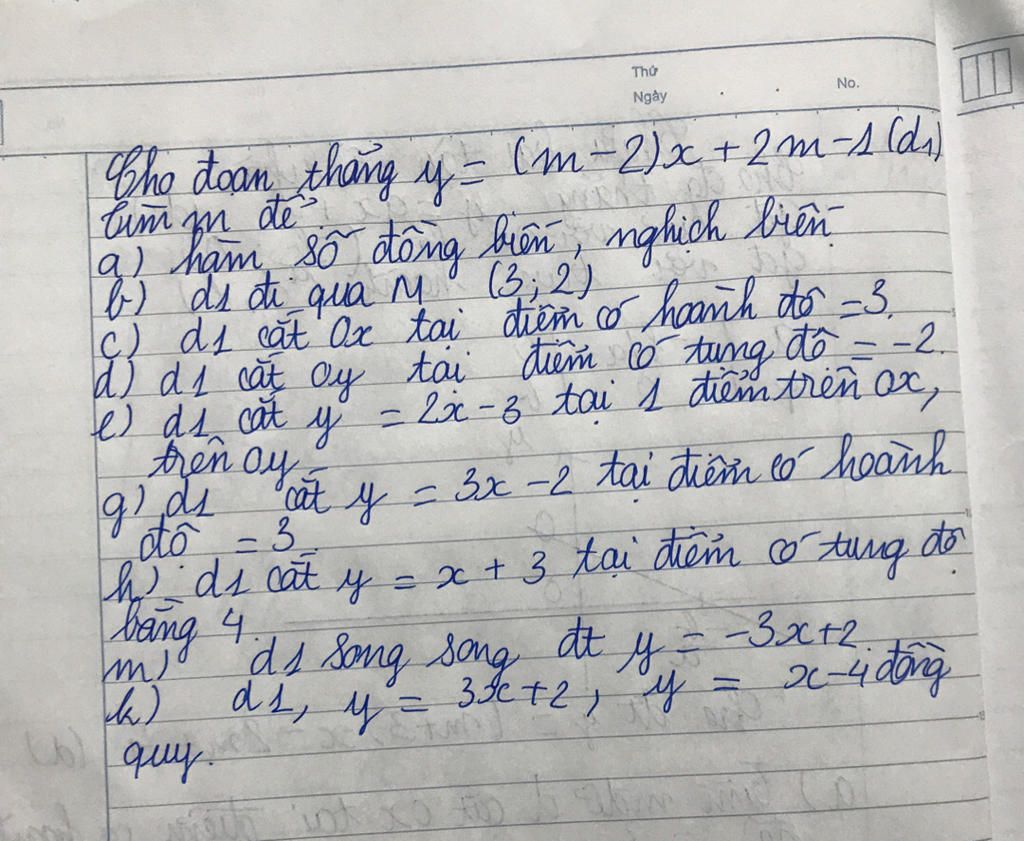 Thứ
Ngày
No.
Cho đoạn thẳng y = (m-2)x + 2m-1 (d1)
tìm m để
a) hàm số đồng biến, nghịch biến
b) d1 đi qua M (3; 2)
c) d1 cắt Ox tại điểm có hoành độ = 3.
d) d1 cắt Oy tại điểm có tung độ = -2.
e) d1 cắt y = 2x - 3 tại 1 điểm trên Ox,
trên Oy
g) d1 cắt y = 3x - 2 tại điểm có hoành
độ = 3
h) d1 cắt y = x + 3 tại điểm có tung độ
bằng 4.
m) d1 song song đt y = -3x+2.
k) d1, y = 3x+2, y = x-4 đồng
quy.